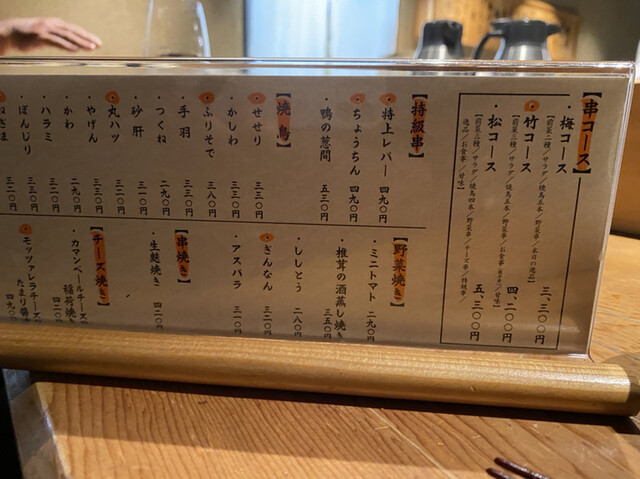 【串コース】
・梅コース 三、三〇〇円
【前菜二種／サラダ／焼鳥五本／野菜串／本日の逸品】
・竹コース 四、二〇〇円
・松コース 五、三〇〇円
【特級串】
・特上レバー 四九〇円
・ちょうちん 四九〇円
・鴨の葱間 五三〇円
【焼鳥】
・せせり 三三〇円
・かしわ 三三〇円
・ふりそで 三八〇円
・手羽 三三〇円
・つくね 二九〇円
・砂肝 三一〇円
・丸ハツ 三三〇円
・やげん 三三〇円
・かわ 二九〇円
・ハラミ 三二〇円
・ぼんじり 三三〇円
・ねぎま 三二〇円
【野菜焼き】
・ミニトマト 二九〇円
・椎茸の酒蒸し焼き 三五〇円
・ししとう 二八〇円
・ぎんなん 三二〇円
・アスパラ 三一〇円
【串焼き】
・生麩焼き 四二〇円
【チーズ焼き】
・カマンベールチーズの
稲荷焼き 四二〇円
・モッツァレラチーズの
たまり醤 四九〇